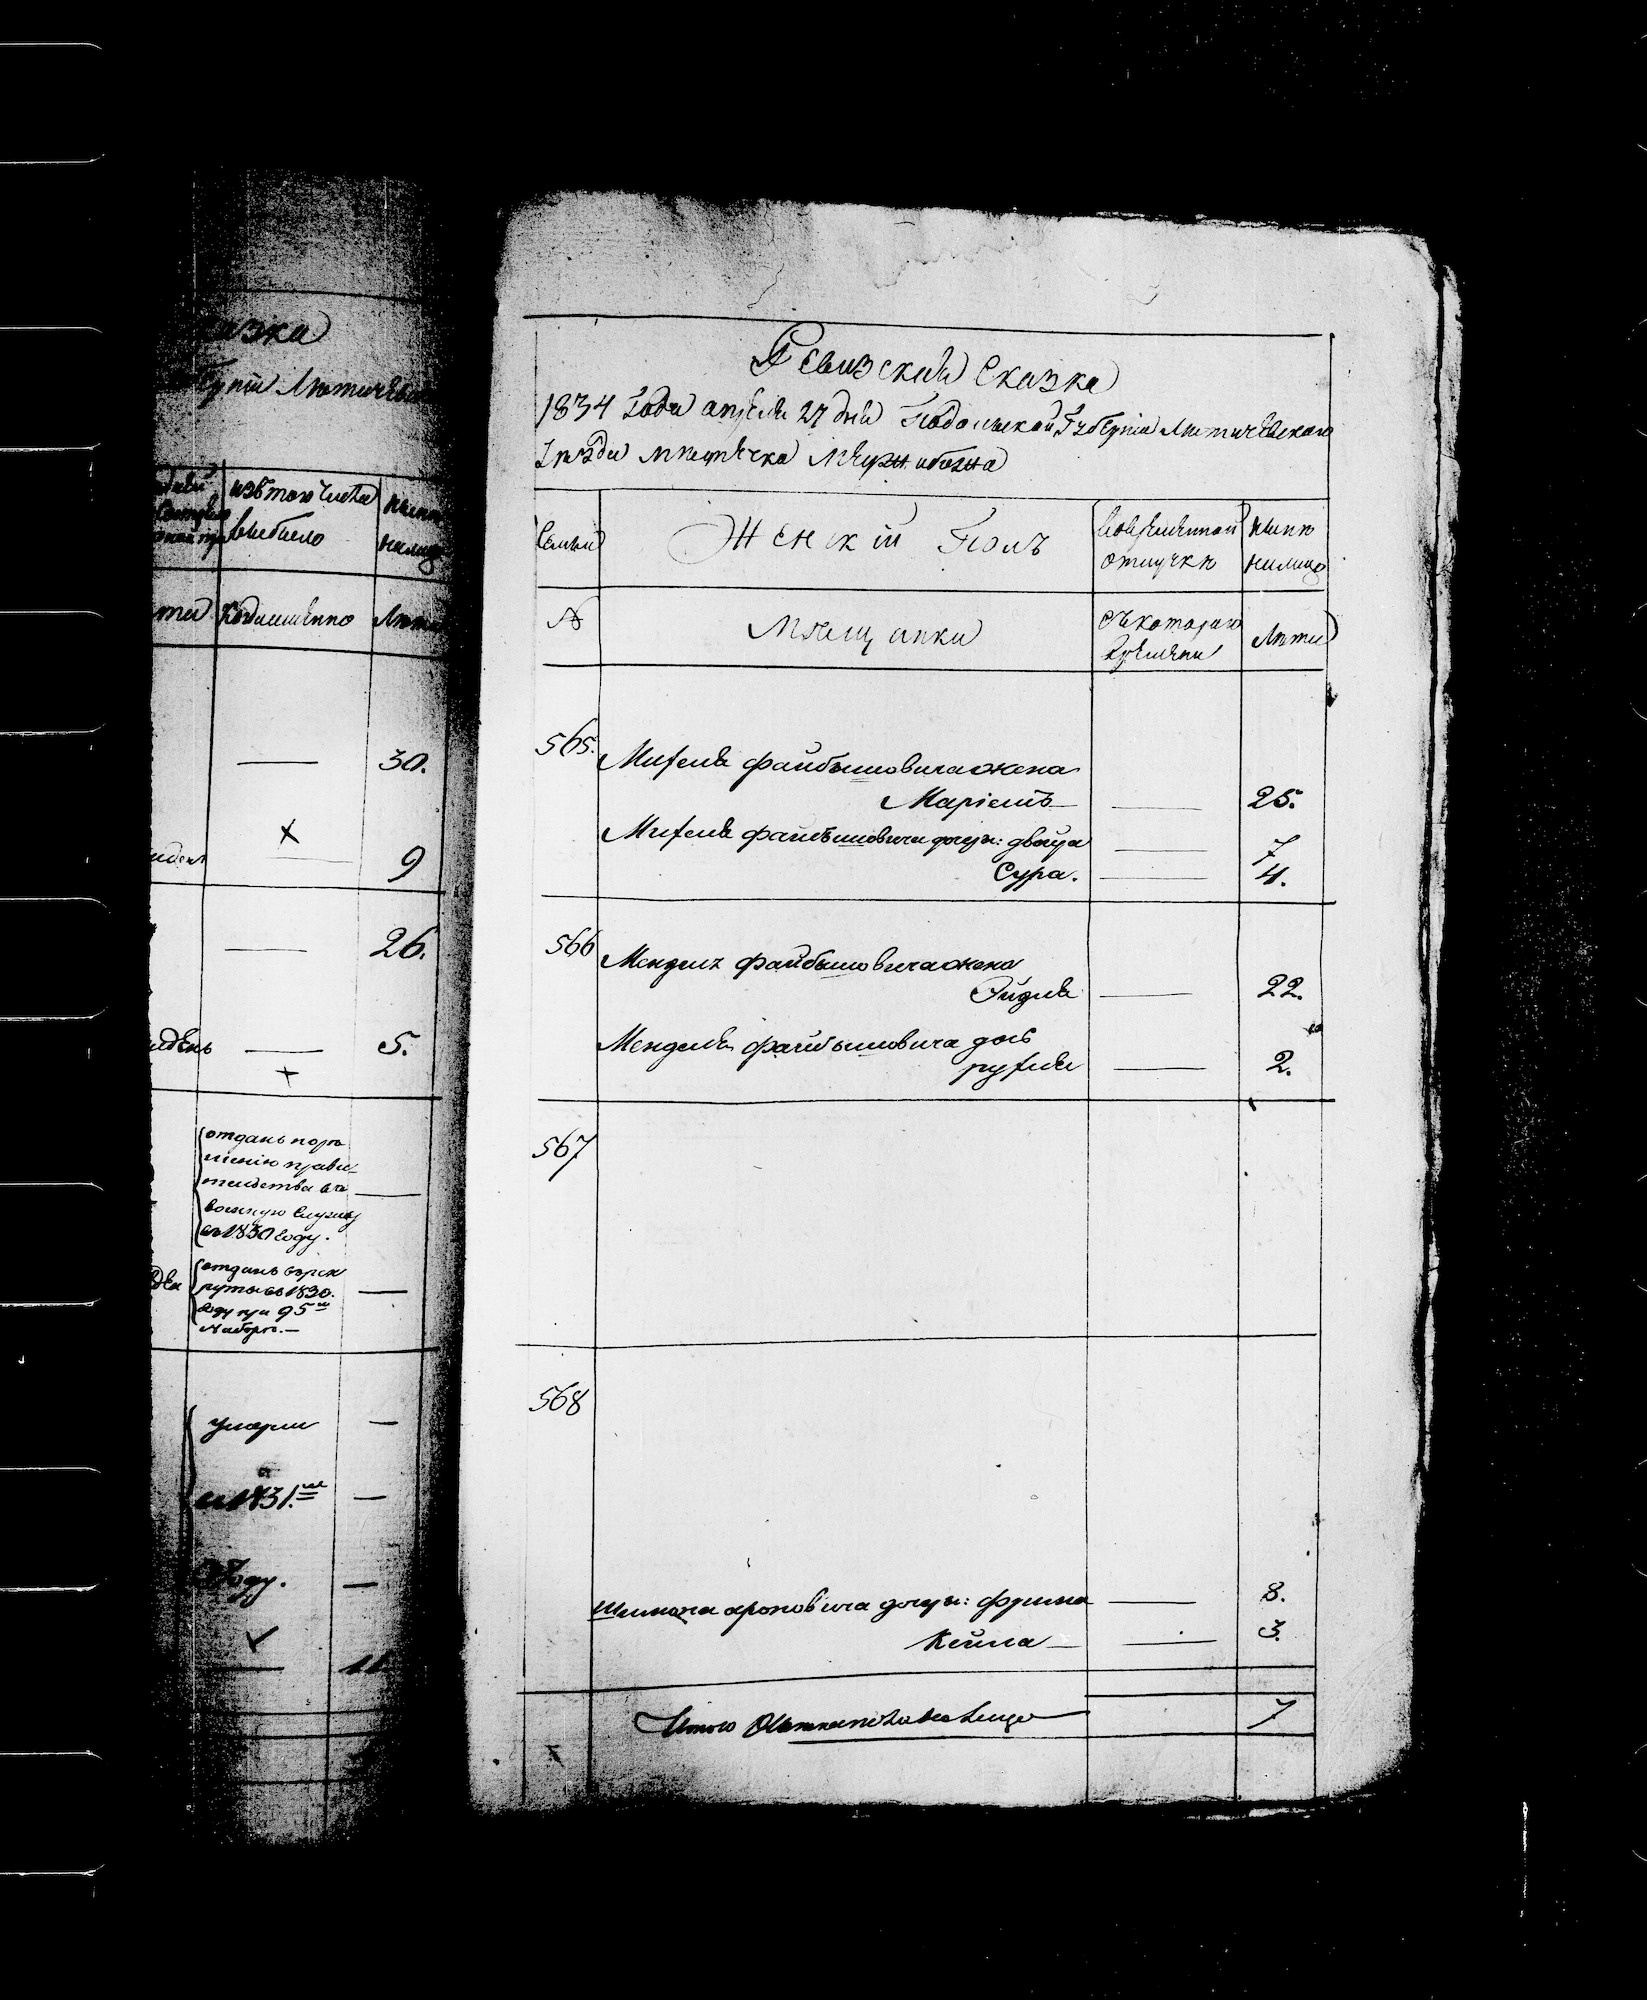 азка
Губернiи Летичевс
изъ того числа
выбыло
ныне
налицо
Когда именно
Лета
30.
9
26.
5.
отданъ по ре
шенiю прави-
тельства въ
военную службу
въ 1830 году.
отданъ въ рек
руты въ 1830.
году при 95м
наборе.—
умерли
въ 1831.м
году.
11
Ревизская Сказка
1834 Года апреля 27 дня Подольской Губернiи Летичевского
Уезда местечка Межибожа
Семьи
Женскiй Полъ
Во временной
отлучке
ныне
налицо
№
Мещанки
съ которого
времени
Лета
565.
Файбышовича жена
Марiемъ
25.
Файбышовича дочери: двойра
7
Сура.
4.
566
Менделя Файбышовича жена
Эйдля
22.
Менделя Файбышовича дочь
рухля
2.
567
568
Шимона ароновича дочери: фрима
8.
Кейла
3.
Итого женскаго пола налицо
7